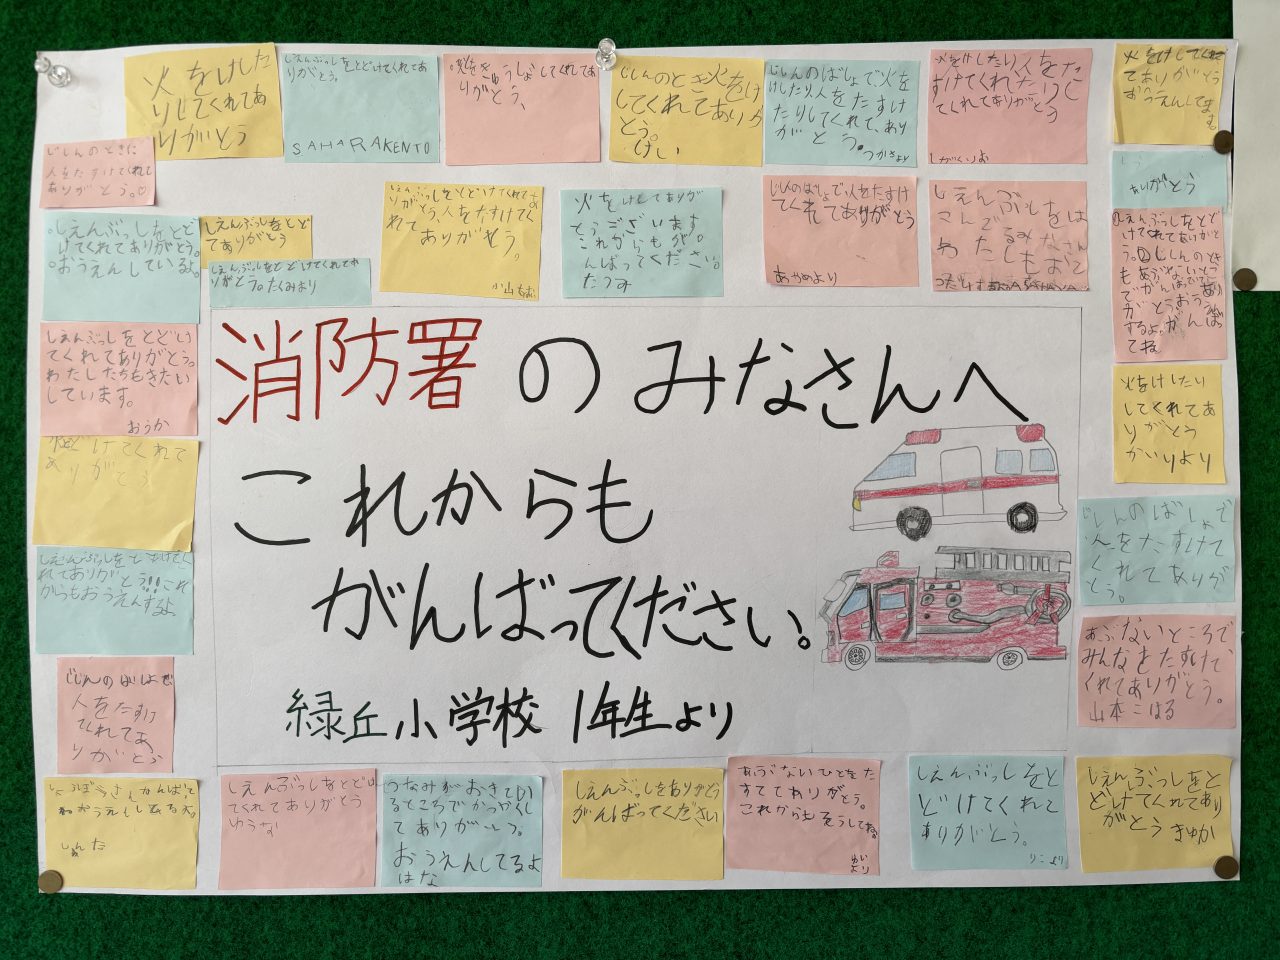 消防署のみなさんへ
これからも
がんばってください。
緑丘小学校 1年生より
火をけした
りしてくれてあ
りがとう
しえんぶっしをとどけてくれてあ
りがとう。
SAHARAKENTO
きゅうじょしてくれてあ
りがとう、
じしんのとき火をけ
してくれてありが
とう。
けい
じしんのばしょで、火を
けしたり人をたすけ
たりしてくれて、あり
がとう。つかさより
火をけしたり人をた
すけてくれたりし
てくれてありがとう
火をけしてくれ
てありがとう
おうえんしてます。
じしんのときに
人をたすけてくれて
ありがとう。♡
しえんぶっしをとど
けてくれてありがとう。
おうえんしているよ。
しえんぶっしをとど
てありがとう
しえんぶっしをとどけてくれてあ
りがとう。たくみより
しえんぶっしをとどけてくれてあ
りがとう。人をたすけてく
れてありがとう。
火をけしてありが
とうございます。
これからもが
んばってください。
たつみ
じしんのばしょで人をたすけ
てくれてありがとう
あやめより
しえんぶっしをは
こんで
ありがとう
しえんぶっしをとど
けてくれてありがと
じしんのとき
もあぶないとこ
でがんばってて
がとう
するよ。がんば
てね
しえんぶっしをとどけ
てくれてありがとう。
わたしたちもきたい
しています。
おうか
火をけしたり
してくれてあ
りがとう
かいりより
けてくれて
ありがとう
じしんのばしょで
人をたすけて
くれてありが
とう。
しえんぶっしをとどけてく
れてありがとう!!これ
からもおうえんするよ
あぶないところで
みんなをたすけて、
くれてありがとう。
山本こはる
じしんのばしょで
人をたすけ
てくれてあ
りがとう
がんばって
しえんぶっしをとど
てくれてありがとう
ゆうな
つなみがおきてい
るところでかつやくし
てありがとう。
おうえんしてるよ
はな
しえんぶっしをありがとう
がんばってください
あぶないひとをた
すててありがとう。
これからもそうしてね。
めい
より
しえんぶっしをと
どけてくれて
ありがとう。
りこより
しえんぶっしをと
どけてくれてあり
がとう きゅか